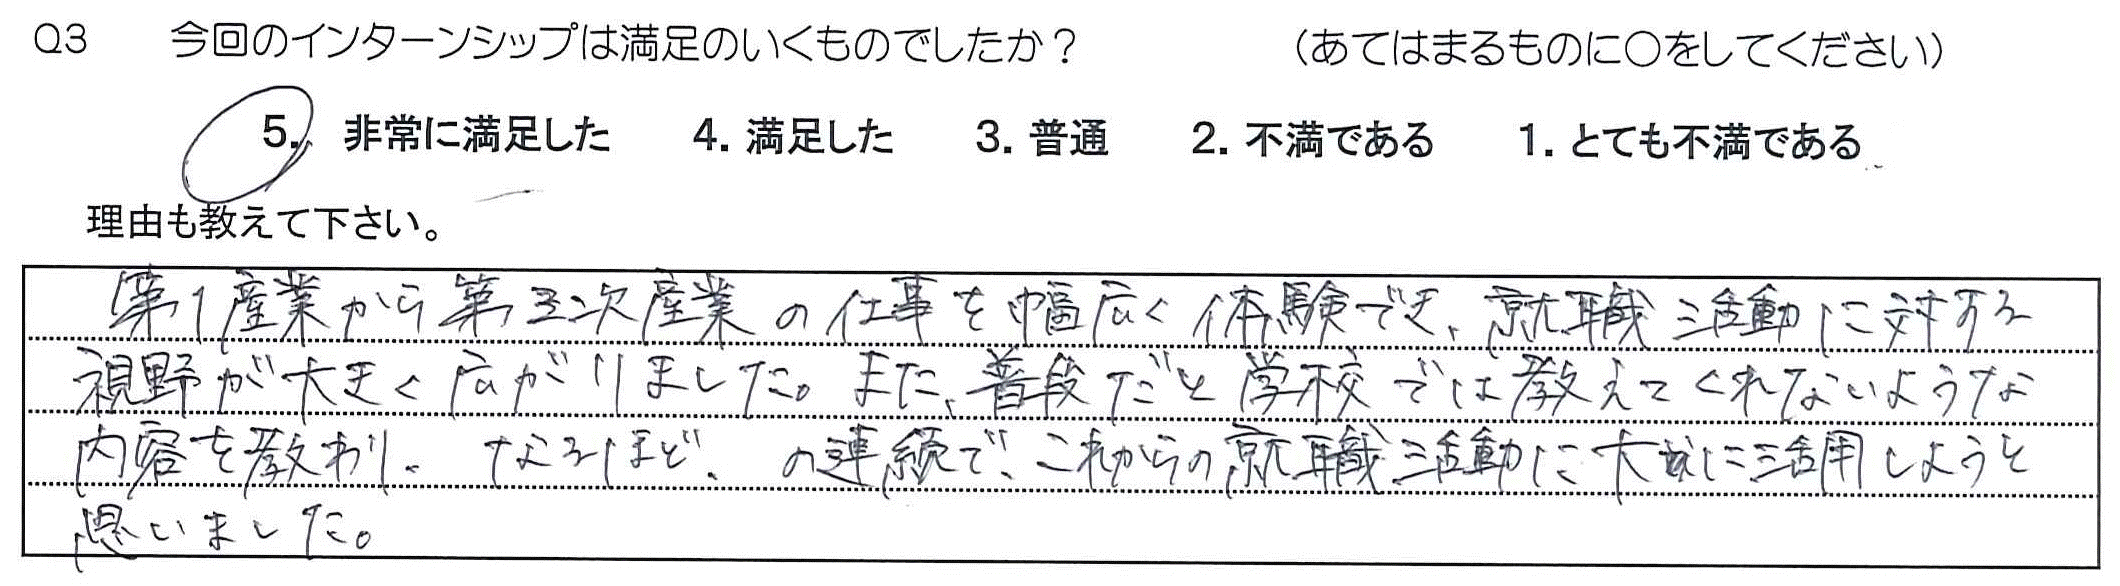 Q3 今回のインターンシップは満足のいくものでしたか? (あてはまるものに○をしてください)
5. 非常に満足した 4. 満足した 3. 普通 2. 不満である 1. とても不満である
理由も教えて下さい。
第1産業から第3次産業の仕事を幅広く体験でき、就職活動に対する
視野が大きく広がりました。また、普段だと学校では教えてくれないような
内容を教わり、なるほど、の連続で、これからの就職活動に大いに活用しようと
思いました。